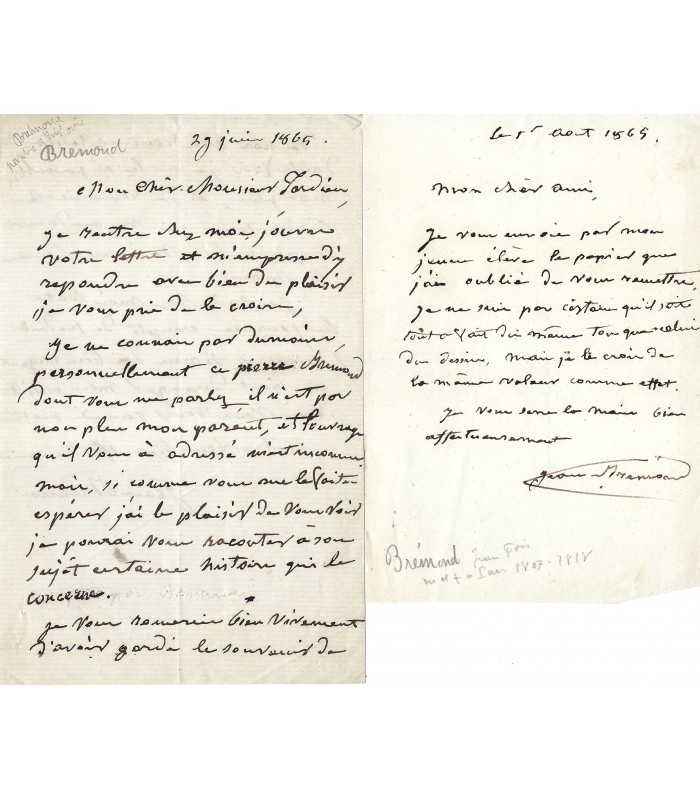 Brémond
Brémond
29 juin 1865.
Mon Chèr Monsieur Tardieu,
je rentre chez moi, je trouve
votre lettre et m'empresse d'y
repondre avec bien du plaisir
je vous prie de le croire,
je ne connais pas du moins,
personnellement ce pierre Bremond
dont vous me parlez, il n'est pas
non plus mon parent, et l'ouvrage
qu'il vous à adressé m'est inconnu
mais, si comme vous me le faites
espérer j'ai le plaisir de vous voir
je pourai vous raconter à son
sujèt certaine histoire qui le
concerne.
je vous remercie bien vivement
d'avoir gardé le souvenir de
le 1r Aout 1865.
mon chèr ami,
je vous envoie par mon
jeune élève le papier que
j'ai oublié de vous remettre,
je ne suis pas certain qu'il soit
tout à fait du même ton que celui
du dessin, mais je le crois de
la même valeur comme effet.
je vous serre la main bien
affectueusement
Jean Bremond
Brémond Jean Fois
1807-1868